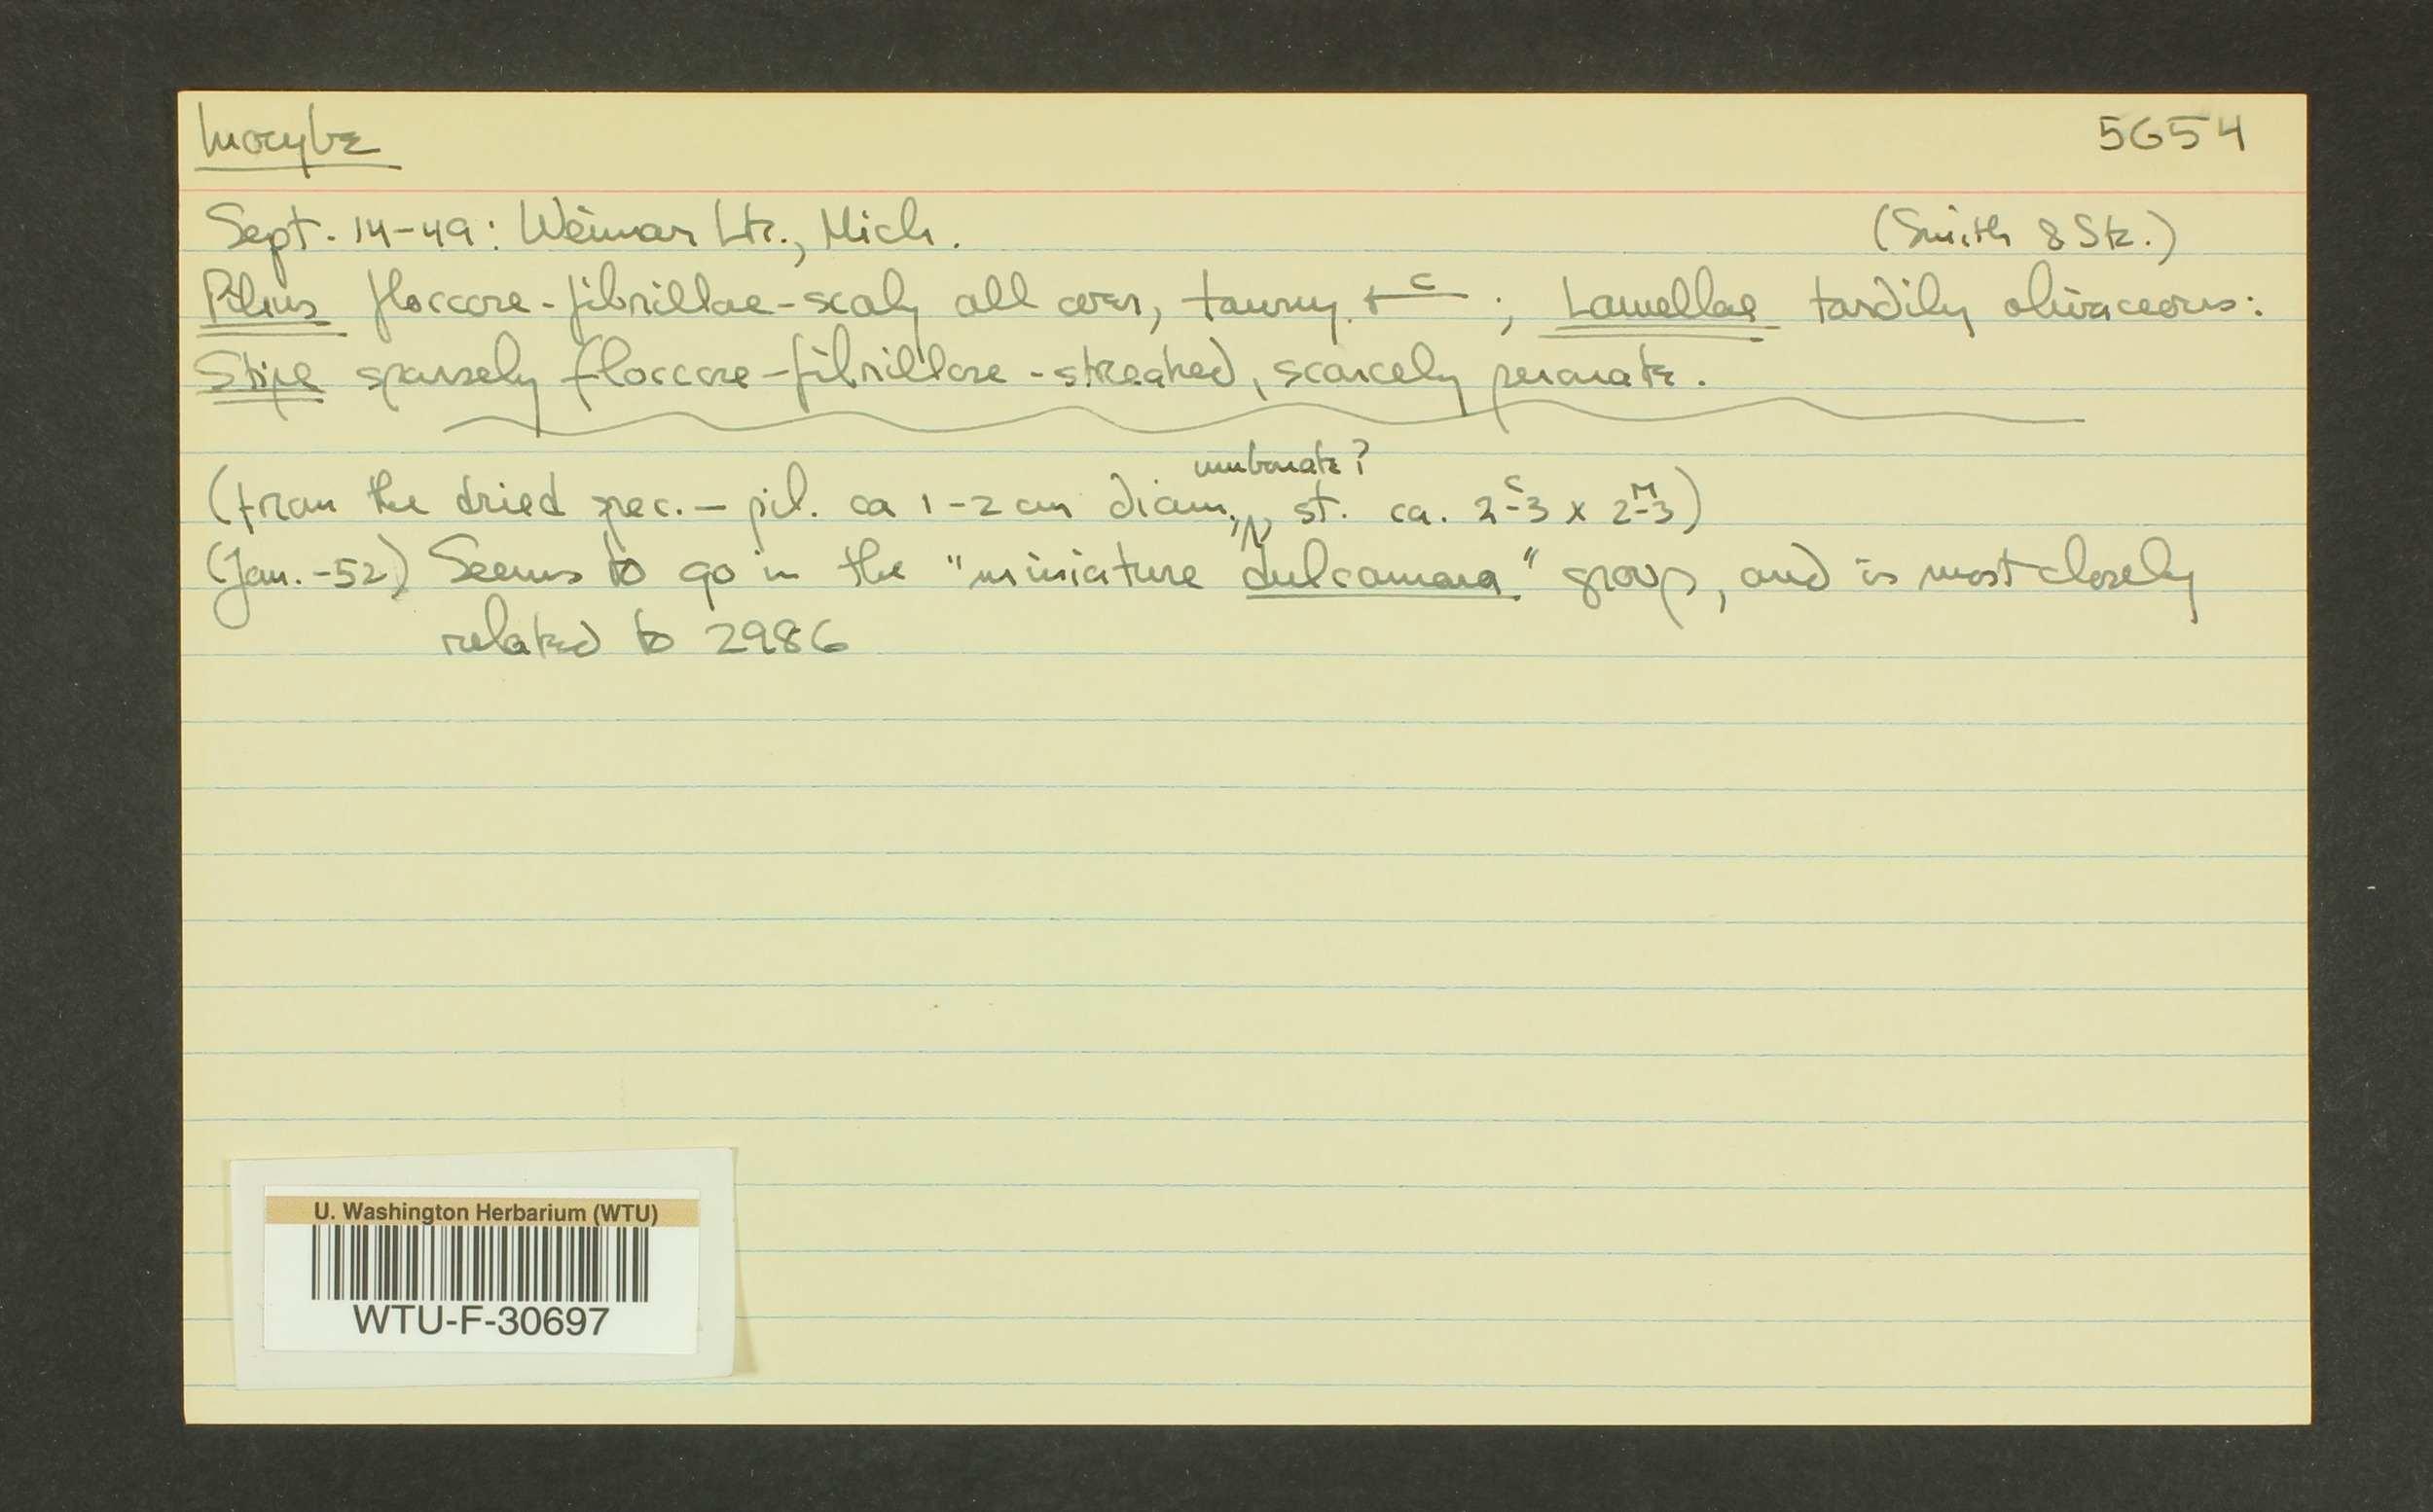 Inocybe 5654
Sept. 14-49: Weimar Ltr., Mich. (Smith & Stz.)
Pileus floccose-fibrillose-scaly all over, tawny ; Lamellae tardily olivaceous:
Stipe sparsely floccose-fibrillose-streaked, scarcely peronate.
umbonate?
(from the dried spec. — pil. ca 1-2 cm diam., st. ca. 2-3 c x 2-3 m)
(Jan. -52) Seems to go in the "miniature dulcamara" group, and is most closely
related to 2986
U. Washington Herbarium (WTU)
WTU-F-30697